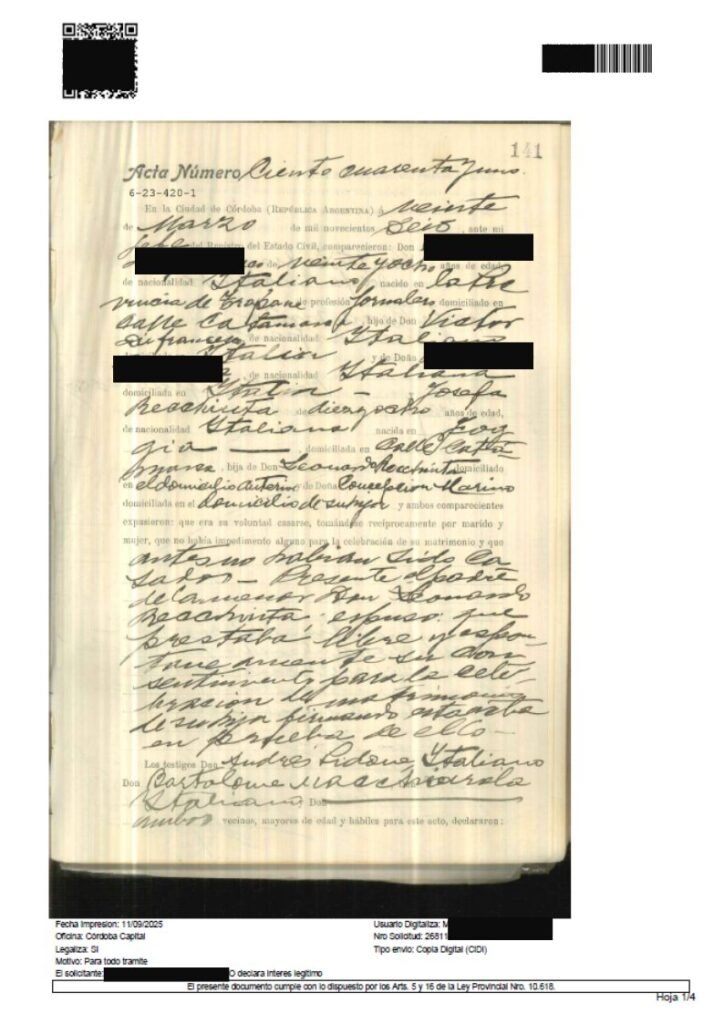 141
Acta Número Ciento cuarenta y uno.
6-23-420-1
En la Ciudad de Córdoba (República Argentina) á veinte
de Marzo de mil novecientos Seis, ante mi
Jefe del Registro del Estado Civil, comparecieron: Don
de veinte y ocho años de edad,
de nacionalidad Italiano nacido en la Pro
vincia de Trapani de profesión Jornalero domiciliado en
calle Catamarca, hijo de Don Victor
de nacionalidad Italiano
Italia y de Doña
de nacionalidad Italiana
domiciliada en Italia — Josefa
Recchiuta de diez y ocho años de edad,
de nacionalidad Italiana nacida en Fog
gia — , domiciliada en Calle Cata
marca, hija de Don Leonardo Recchiuta domiciliado
en el domicilio anterior de Doña Concepcion Marino
domiciliada en el domicilio de su hija y ambos comparecientes
expusieron: que era su voluntad casarse, tomándose recíprocamente por marido y
mujer, que no había impedimento alguno para la celebración de su matrimonio y que
antes no habian sido ca
sados — Presente el padre
de la menor Don Leonardo
Recchiuta, expuso: que
prestaba libre y espon
taneamente su con
sentimiento para la cele
bracion del matrimonio
de su hija firmando esta acta
en prueba de ello —
Los testigos Don Andrés Italiano
Don Bartolome Macchiarola
Italiano Don
ambos vecinos, mayores de edad y hábiles para este acto, declararon:
Fecha Impresion: 11/09/2025
Oficina: Córdoba Capital
Legaliza: SI
Motivo: Para todo tramite
El solicitante: O declara interes legitimo
Usuario Digitaliza: M
Nro Solicitud: 26811
Tipo envio: Copia Digital (CIDI)
El presente documento cumple con lo dispuesto por los Arts. 5 y 16 de la Ley Provincial Nro. 10.618.
Hoja 1/4